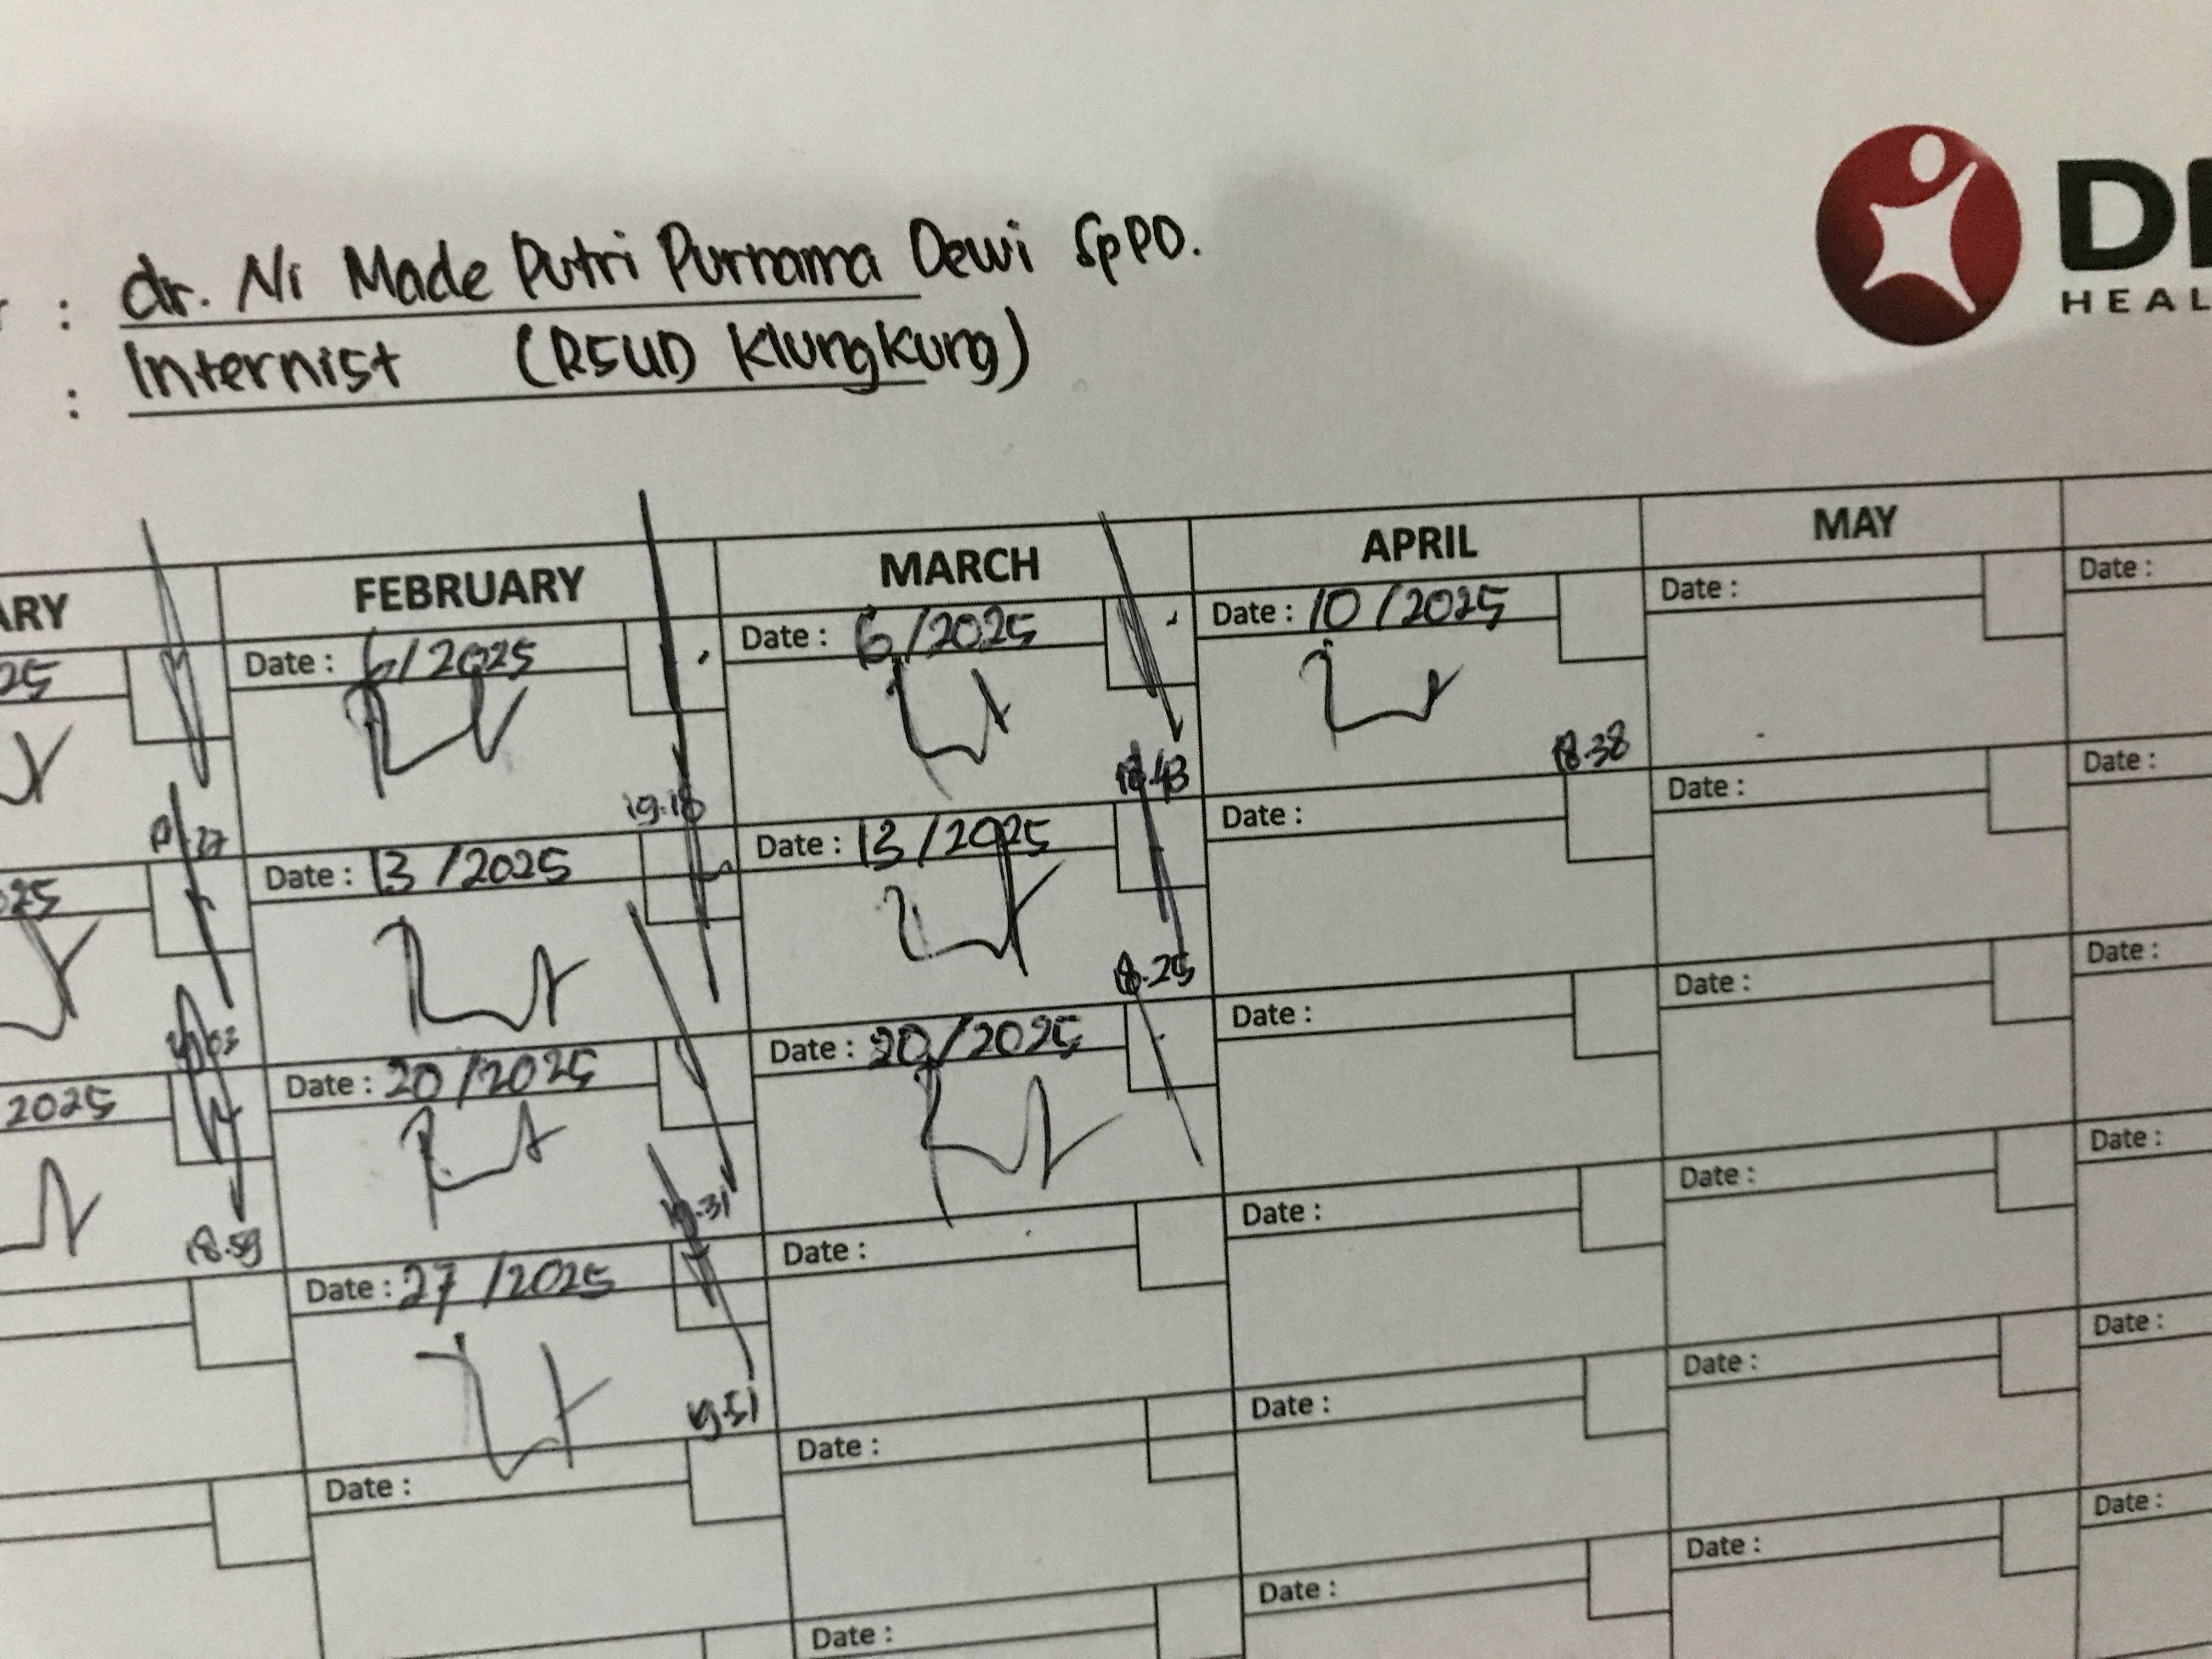 : dr. Ni Made Putri Purnama Dewi SpPD.
: Internist (RSUD Klungkung)
DI
HEAL
ARY FEBRUARY MARCH APRIL MAY
25 Date : 6/2025 Date : 6/2025 Date : 10/2025 Date : Date :
19.18 18.43 18.38
025 Date : 13/2025 Date : 13/2025 Date : Date : Date :
18.25
2025 Date : 20/2025 Date : 20/2025 Date : Date : Date :
18.59 19.31
Date : 27/2025 Date : Date : Date : Date :
19.51
Date : Date : Date : Date : Date :
Date : Date : Date : Date :